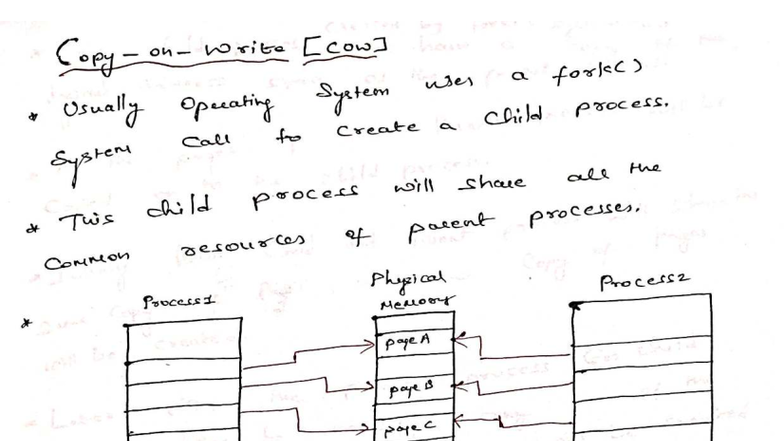 Copy-on-Write [COW]
* Usually Operating System uses a fork()
System Call to Create a Child process.
* This child process will share all the
Common resources of parent processes.
*
Process1
Physical
Memory
Process2
page A
page B
page C